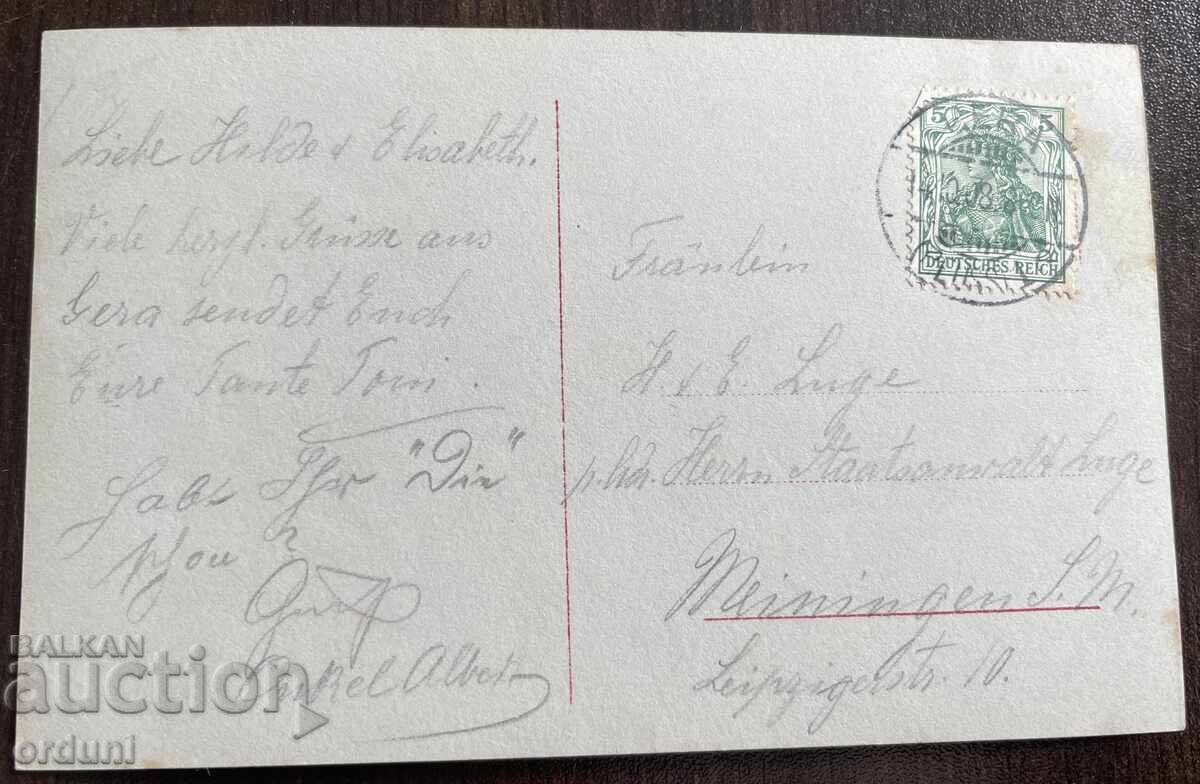 Liebe Hilde & Elisabeth.
Viele herzl. Grüsse aus
Gera sendet Euch
Eure Tante Toni.
Habt Ihr "Die"
schon?
Gruß
Onkel Albert
5 5
DEUTSCHES REICH
GERA
08
Fräulein
H. & E. Luge
Herrn Staatsanwalt Luge
Meiningen S. M.
Leipzigerstr. 10.
BALKAN
auction
orduni